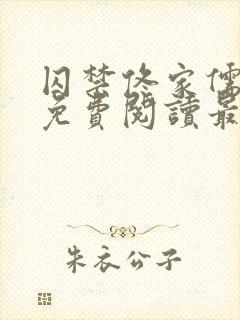 囚禁佟家儒
免費閱讀最
朱衣公子